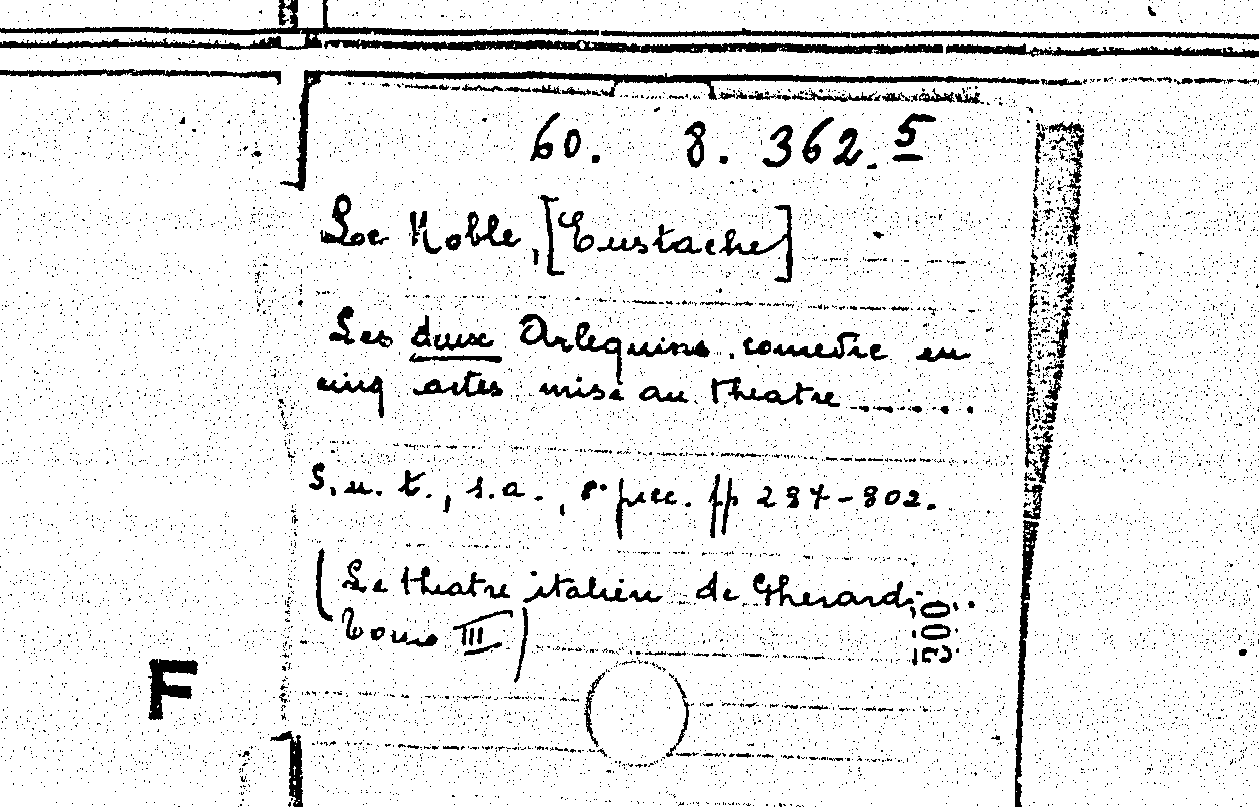 60. 8. 362. 5
Le Noble, [Eustache]
Les deux Arlequins. comedie en
cinq actes mise au theatre .......
S. n. t., s. a., 8° picc. pp 237-302.
(Le theatre italien de Gherardi
Tome III)
300
F